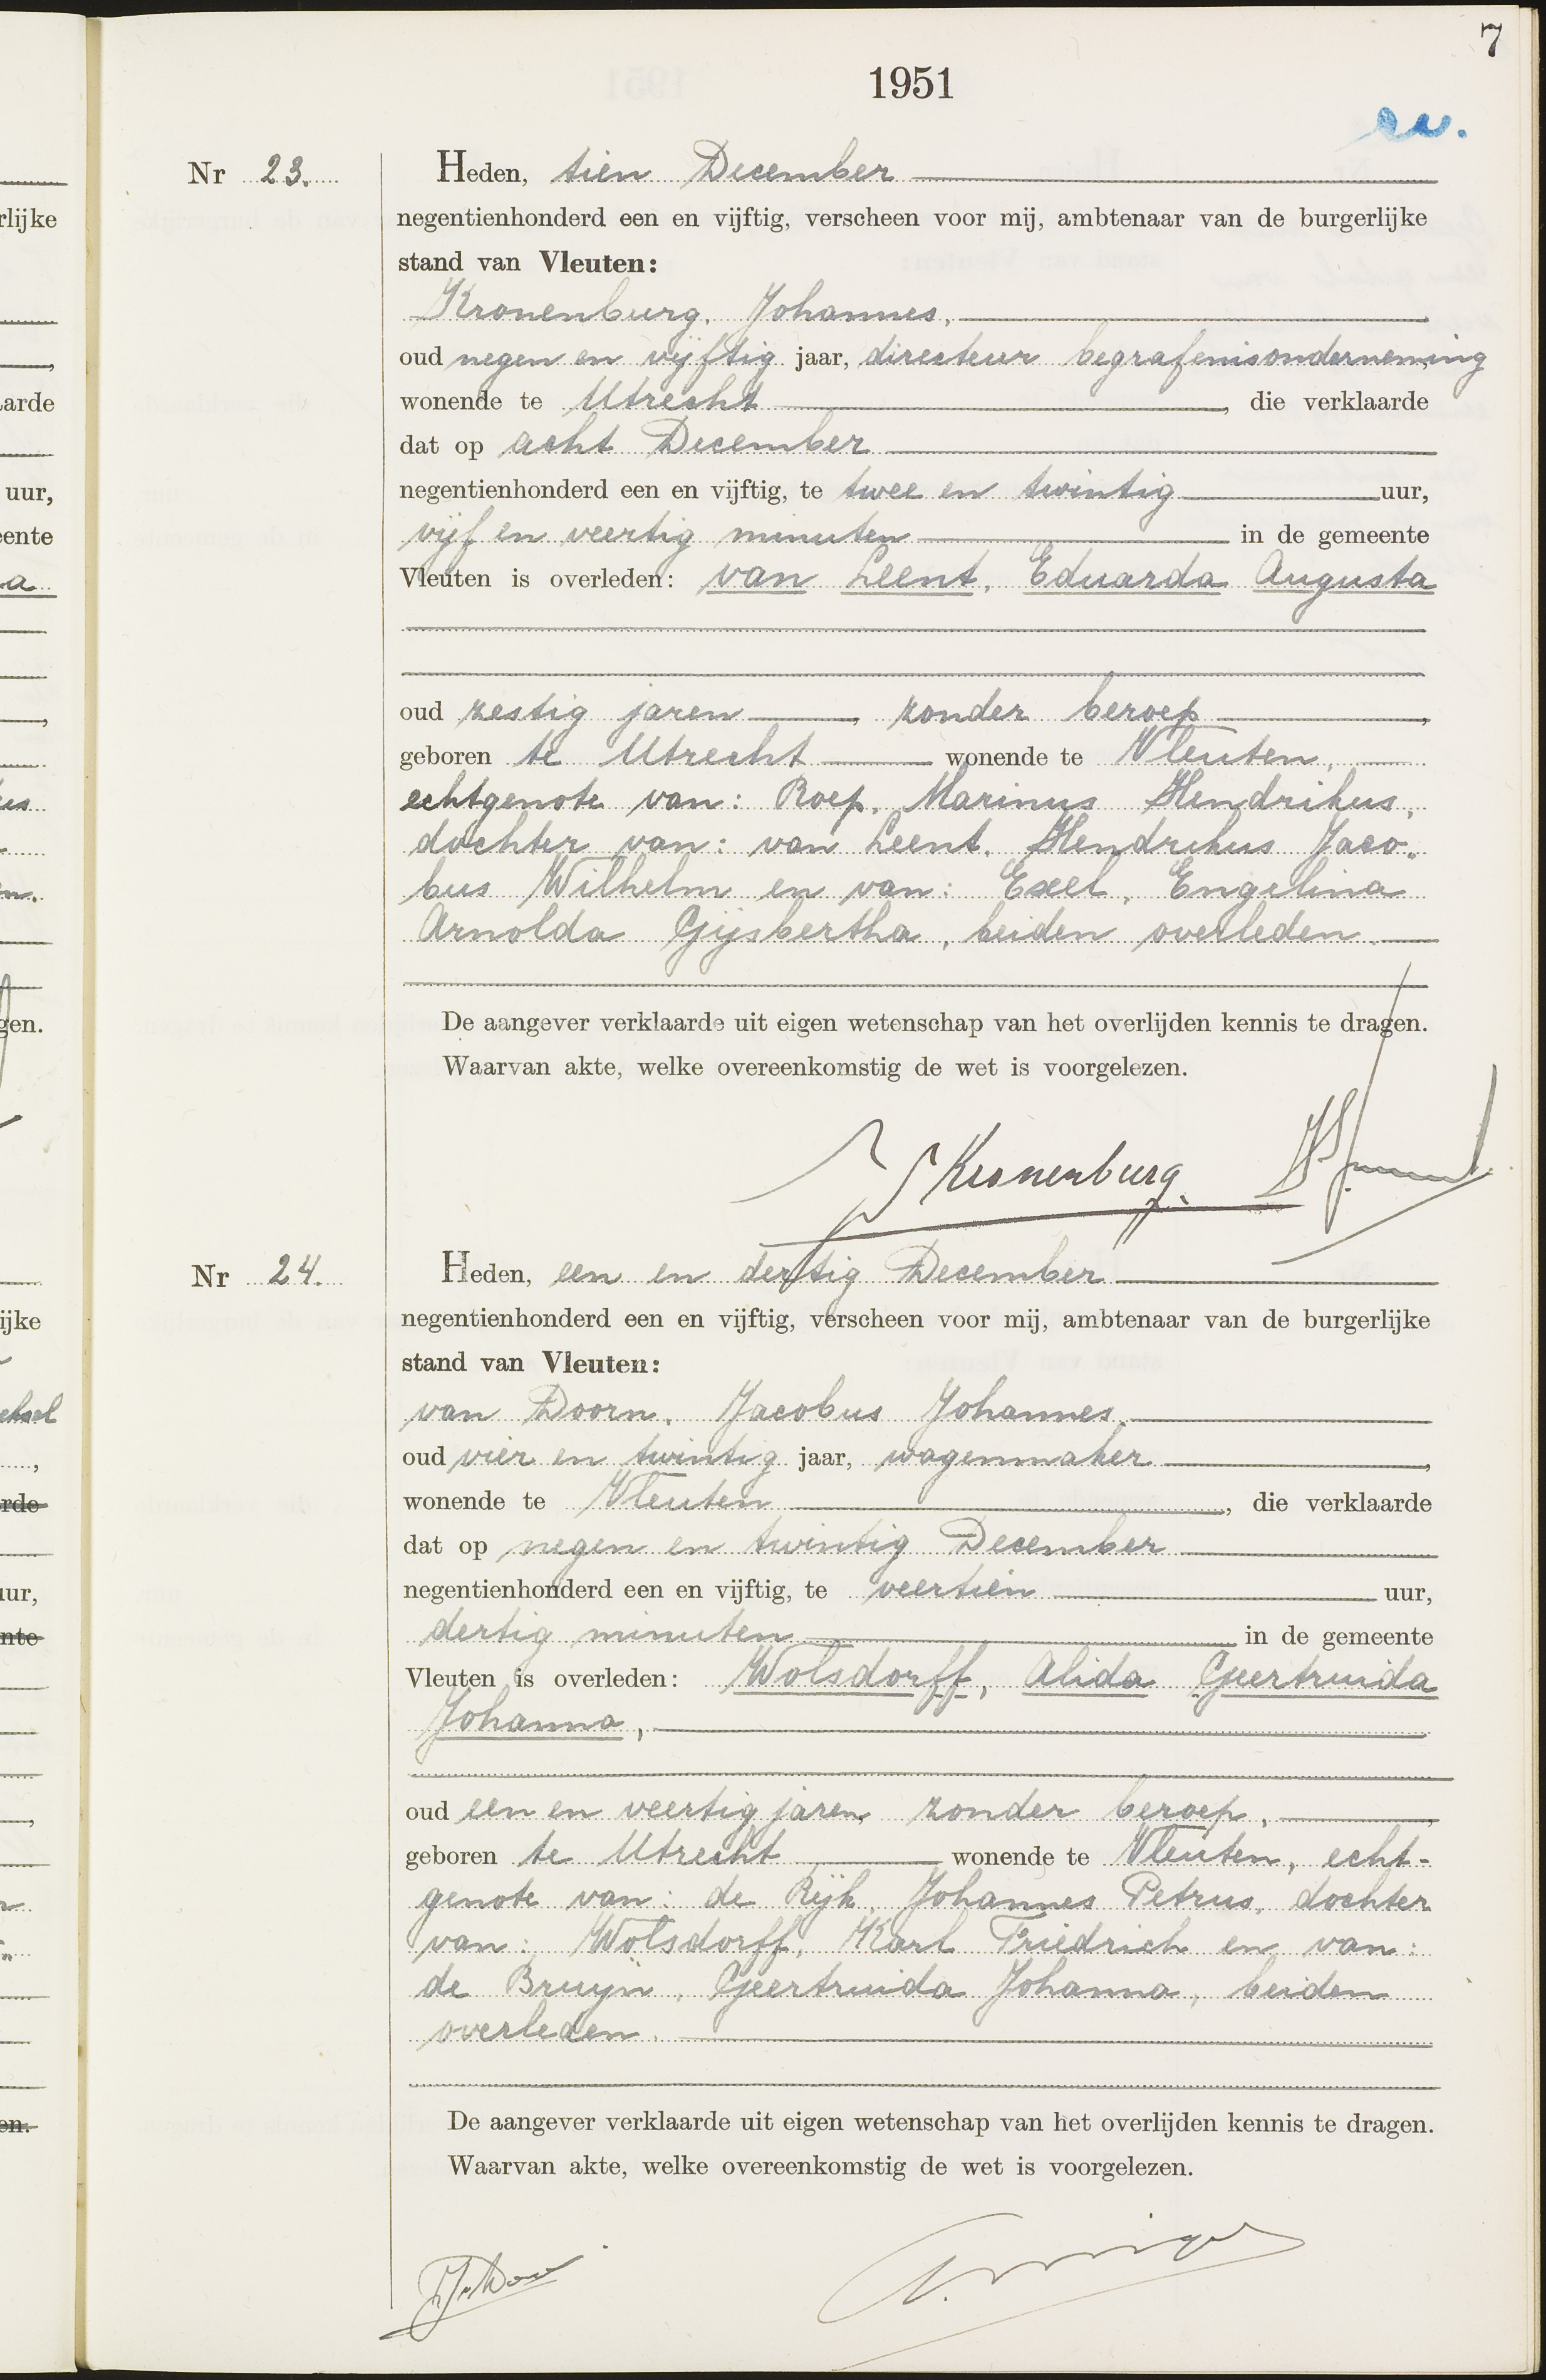 7
1951
Nr 23.
Heden, tien December
negentienhonderd een en vijftig, verscheen voor mij, ambtenaar van de burgerlijke
stand van Vleuten:
Kronenburg, Johannes,
oud negen en vijftig jaar, directeur begrafenisonderneming
wonende te Utrecht, die verklaarde
dat op acht December
negentienhonderd een en vijftig, te twee en twintig uur,
vijf en veertig minuten in de gemeente
Vleuten is overleden: van Leent, Eduarda Augusta
oud zestig jaren, zonder beroep,
geboren te Utrecht wonende te Vleuten,
echtgenote van: Roep, Marinus Hendrikus,
dochter van: van Leent, Hendrikus Jaco„
bus Wilhelm en van: Exel, Engelina
Arnolda Gijsbertha, beiden overleden.
De aangever verklaarde uit eigen wetenschap van het overlijden kennis te dragen.
Waarvan akte, welke overeenkomstig de wet is voorgelezen.
Kronenburg.
Nr 24.
Heden, een en dertig December
negentienhonderd een en vijftig, verscheen voor mij, ambtenaar van de burgerlijke
stand van Vleuten:
van Doorn, Jacobus Johannes,
oud vier en twintig jaar, wagenmaker,
wonende te Vleuten, die verklaarde
dat op negen en twintig December
negentienhonderd een en vijftig, te veertien uur,
dertig minuten in de gemeente
Vleuten is overleden: Wolsdorff, Alida Geertruida
Johanna,
oud een en veertig jaren, zonder beroep,
geboren te Utrecht wonende te Vleuten, echt-
genote van: de Rijk, Johannes Petrus, dochter
van: Wolsdorff, Karl Friedrich en van:
de Bruijn, Geertruida Johanna, beiden
overleden.
De aangever verklaarde uit eigen wetenschap van het overlijden kennis te dragen.
Waarvan akte, welke overeenkomstig de wet is voorgelezen.